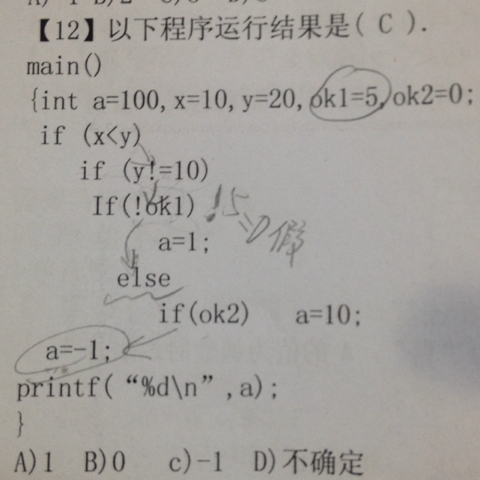 【12】以下程序运行结果是( C ).
main()
{int a=100,x=10,y=20,ok1=5,ok2=0;
if (x<y)
if (y!=10)
If(!ok1) !5
a=1; =>0 假
else
if(ok2) a=10;
a=-1;
printf(“%d\n”,a);
}
A)1 B)0 c)-1 D)不确定